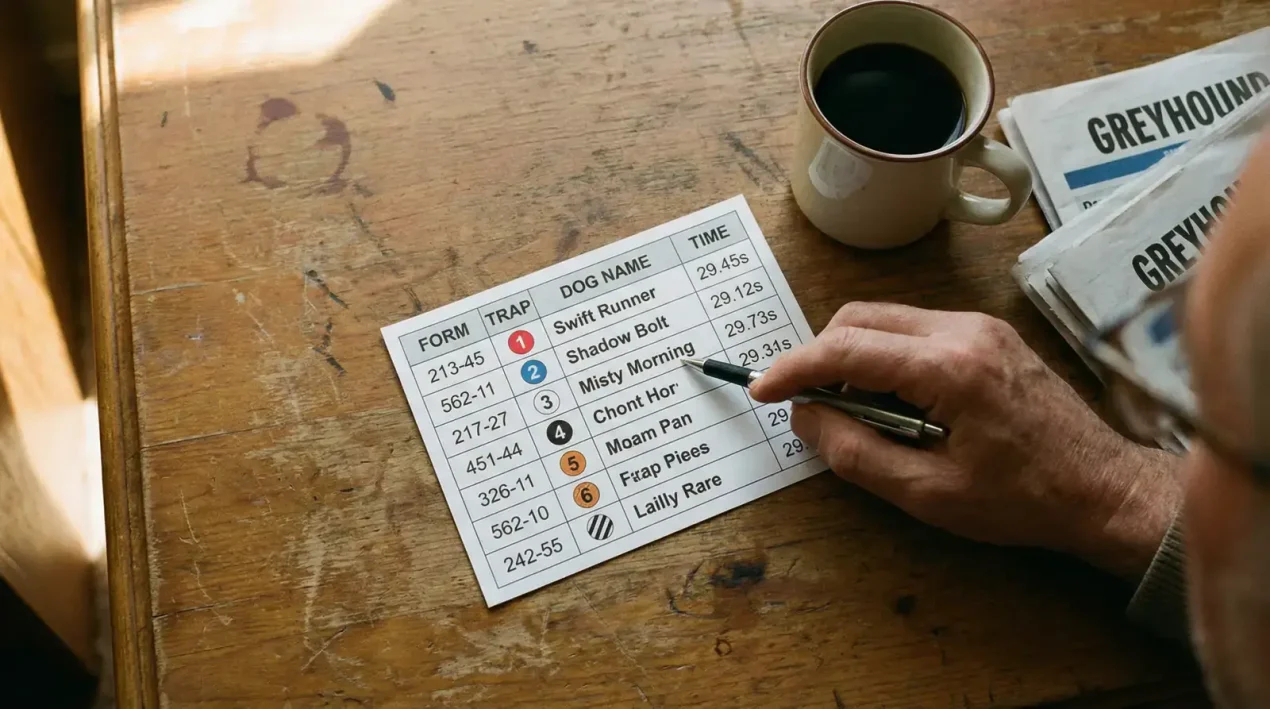 FORM TRAP DOG NAME TIME
213-45 1 Swift Runner 29.45s
562-11 2 Shadow Bolt 29.12s
217-27 3 Misty Morning 29.73s
451-44 4 Chont Hor 29.31s
326-11 5 Moam Pan 29.
562-10 6 Frap Piees 29.
242-55 Lailly Rare
GREYHOUND
GREYHOU